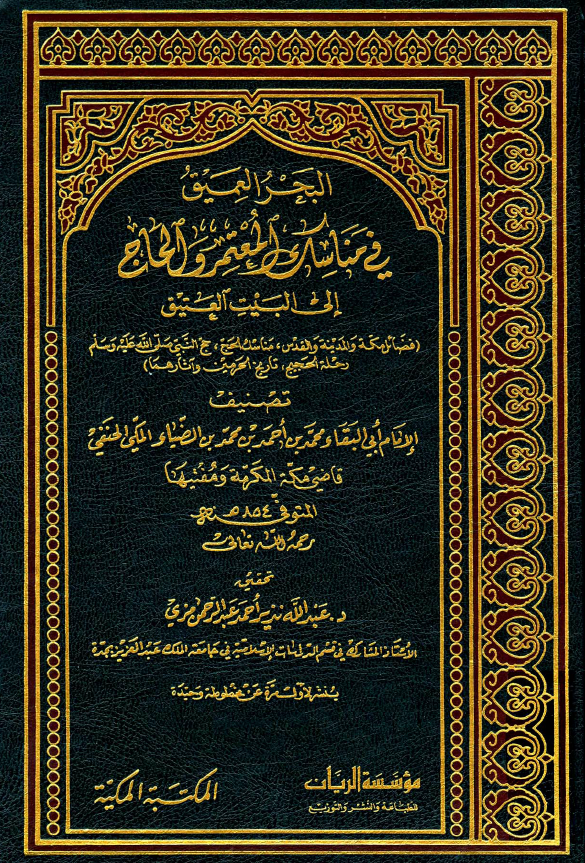 البحر العميق
في مناسك المعتمر والحاج
إلى البيت العتيق
(فضائل مكة والمدينة والقدس، مناسك الحج، حج النبي صلى الله عليه وسلم
رحلة الحجيج، تاريخ الحرمين وآثارهما)
تصنيف
الإمام أبي البقاء محمد بن أحمد بن محمد بن الضياء المكي الحنفي
قاضي مكة المكرمة ومفتيها
المتوفى ٨٥٤ هـ
رحمه الله تعالى
تحقيق
د. عبدالله نذير أحمد عبدالرحمن مزي
الأستاذ المشارك في قسم الدراسات الإسلامية في جامعة الملك عبدالعزيز بجدة
ينشر لأول مرة عن مخطوطة وحيدة
مؤسسة الريان
للطباعة والنشر والتوزيع
المكتبة المكية